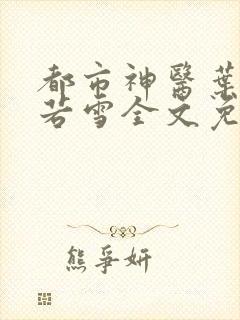 都市神醫葉
若雪全文免
熊爭妍